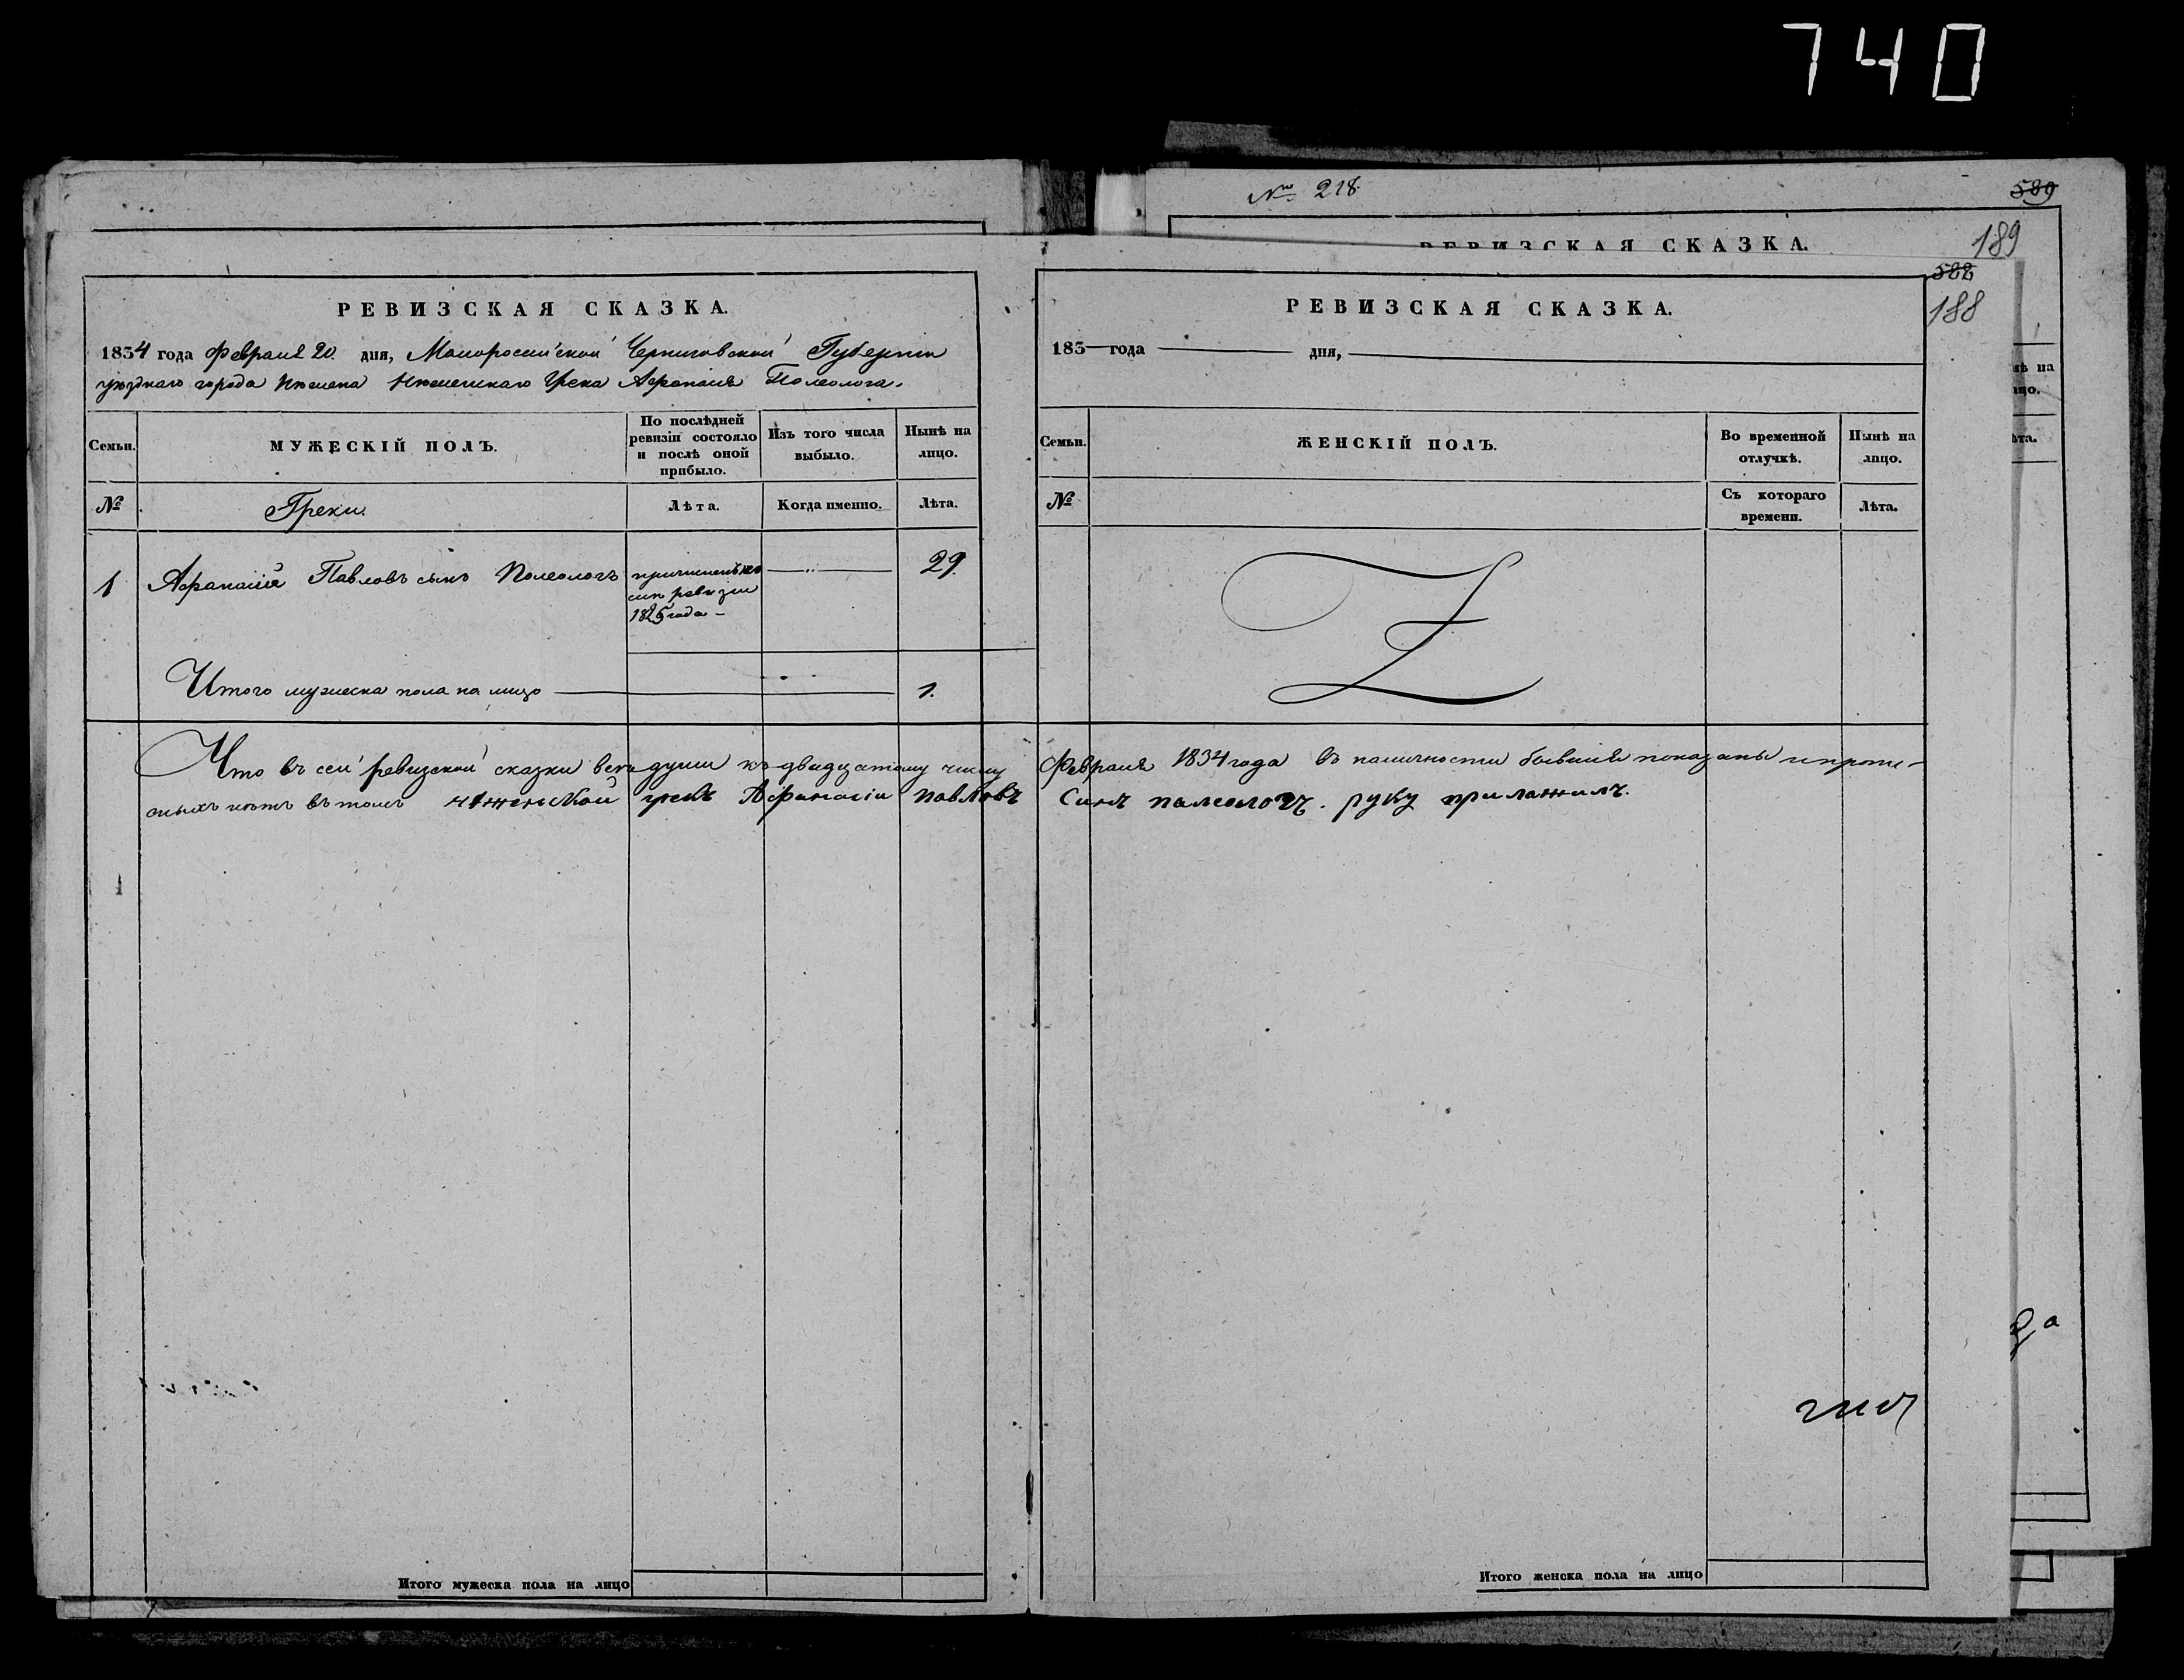 740
№ 218
589
РЕВИЗСКАЯ СКАЗКА.
189
588
188
РЕВИЗСКАЯ СКАЗКА.
1834 года Февраля 20. дня, Малоросийской Черниговской Губернии
уезднаго города Нежина Нежинскаго Грека Афанасия Полеолога.
Семьи.
МУЖЕСКІЙ ПОЛЪ.
По послѣдней
ревизіи состояло
и послѣ оной
прибыло.
Изъ того числа
выбыло.
Нынѣ на
лицо.
№
Греки.
Лѣта.
Когда именно.
Лѣта.
1 Афанасій Павловъ сынъ Полеологъ
ревизіи
1825 года
29.
Итого мужеска пола на лицо 1.
Что въ сей ревизской сказки все души къ двадцатому числу
нетъ въ томъ неженской грекъ Афанасіи павловъ
РЕВИЗСКАЯ СКАЗКА.
183 года дня,
Семьи.
ЖЕНСКІЙ ПОЛЪ.
Во временной
отлучкѣ.
Нынѣ на
лицо.
№
Съ котораго
времени.
Лѣта.
Февраля 1834 года въ наличности бывшие показаны и прописных
Синъ палеологъ. руку приложилъ.
Итого мужеска пола на лицо
Итого женска пола на лицо